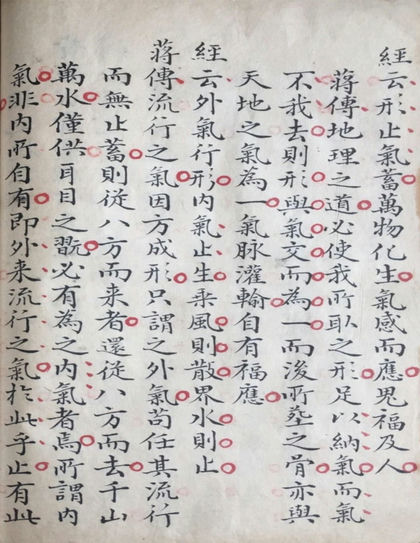 經云形止氣蓄萬物化生氣感而應鬼福及人
蔣傳地理之道必使我所取之形足以納氣而氣
不我去則形與氣交而為一而後所塟之骨亦與
天地之氣為一氣脉灌輸自有福應
經云外氣行形內氣止生乘風則散界水則止
蔣傳流行之氣因方成形只謂之外氣苟任其流行
而無止蓄則從八方而来者還從八方而去千山
萬水僅供耳目之翫必有為之內氣者焉所謂內
氣非内所自有即外来流行之氣扵此乎止有此